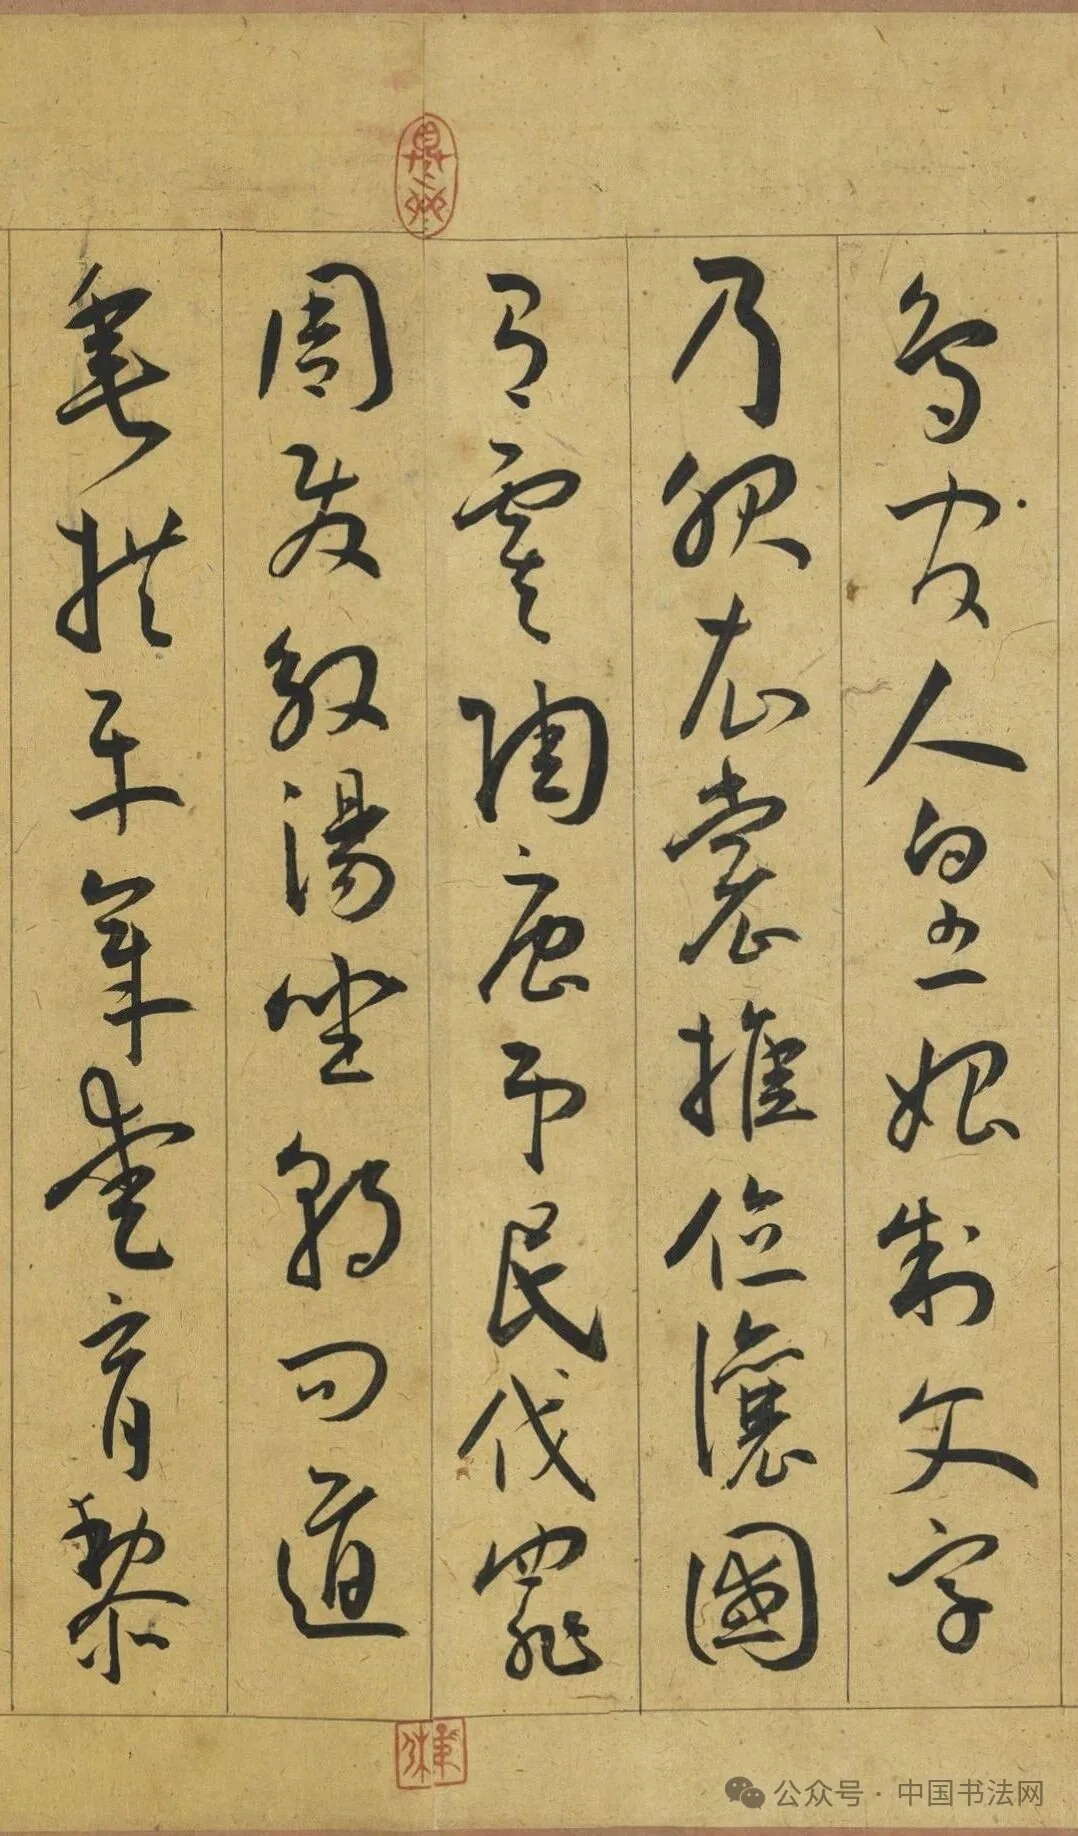 鳥官人皇始制文字
乃服衣裳推位讓國
有虞陶唐弔民伐罪
周發殷湯坐朝問道
垂拱平章愛育黎
公众号 · 中国书法网